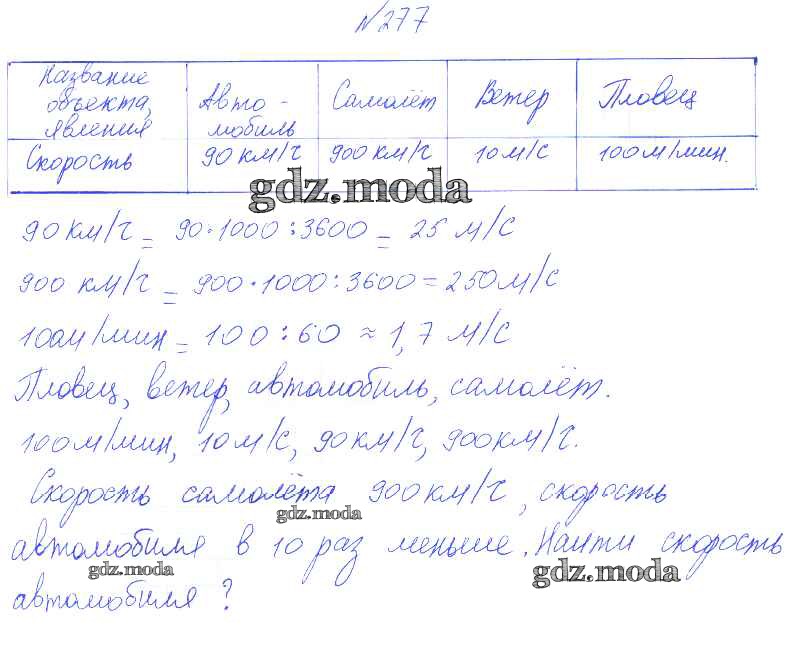 №277
Название объекта, явления Авто-мобиль Самолёт Ветер Пловец
Скорость 90 км/ч 900 км/ч 10 м/с 100 м/мин.
gdz.moda
90 км/ч = 90·1000:3600 = 25 м/с
900 км/ч = 900·1000:3600 = 250 м/с
100м/мин = 100:60 ≈ 1,7 м/с
Пловец, ветер, автомобиль, самолёт.
100м/мин, 10м/с, 90км/ч, 900км/ч.
Скорость самолёта 900км/ч, скорость
gdz.moda
автомобиля в 10 раз меньше. Найти скорость
gdz.moda gdz.moda
автомобиля?